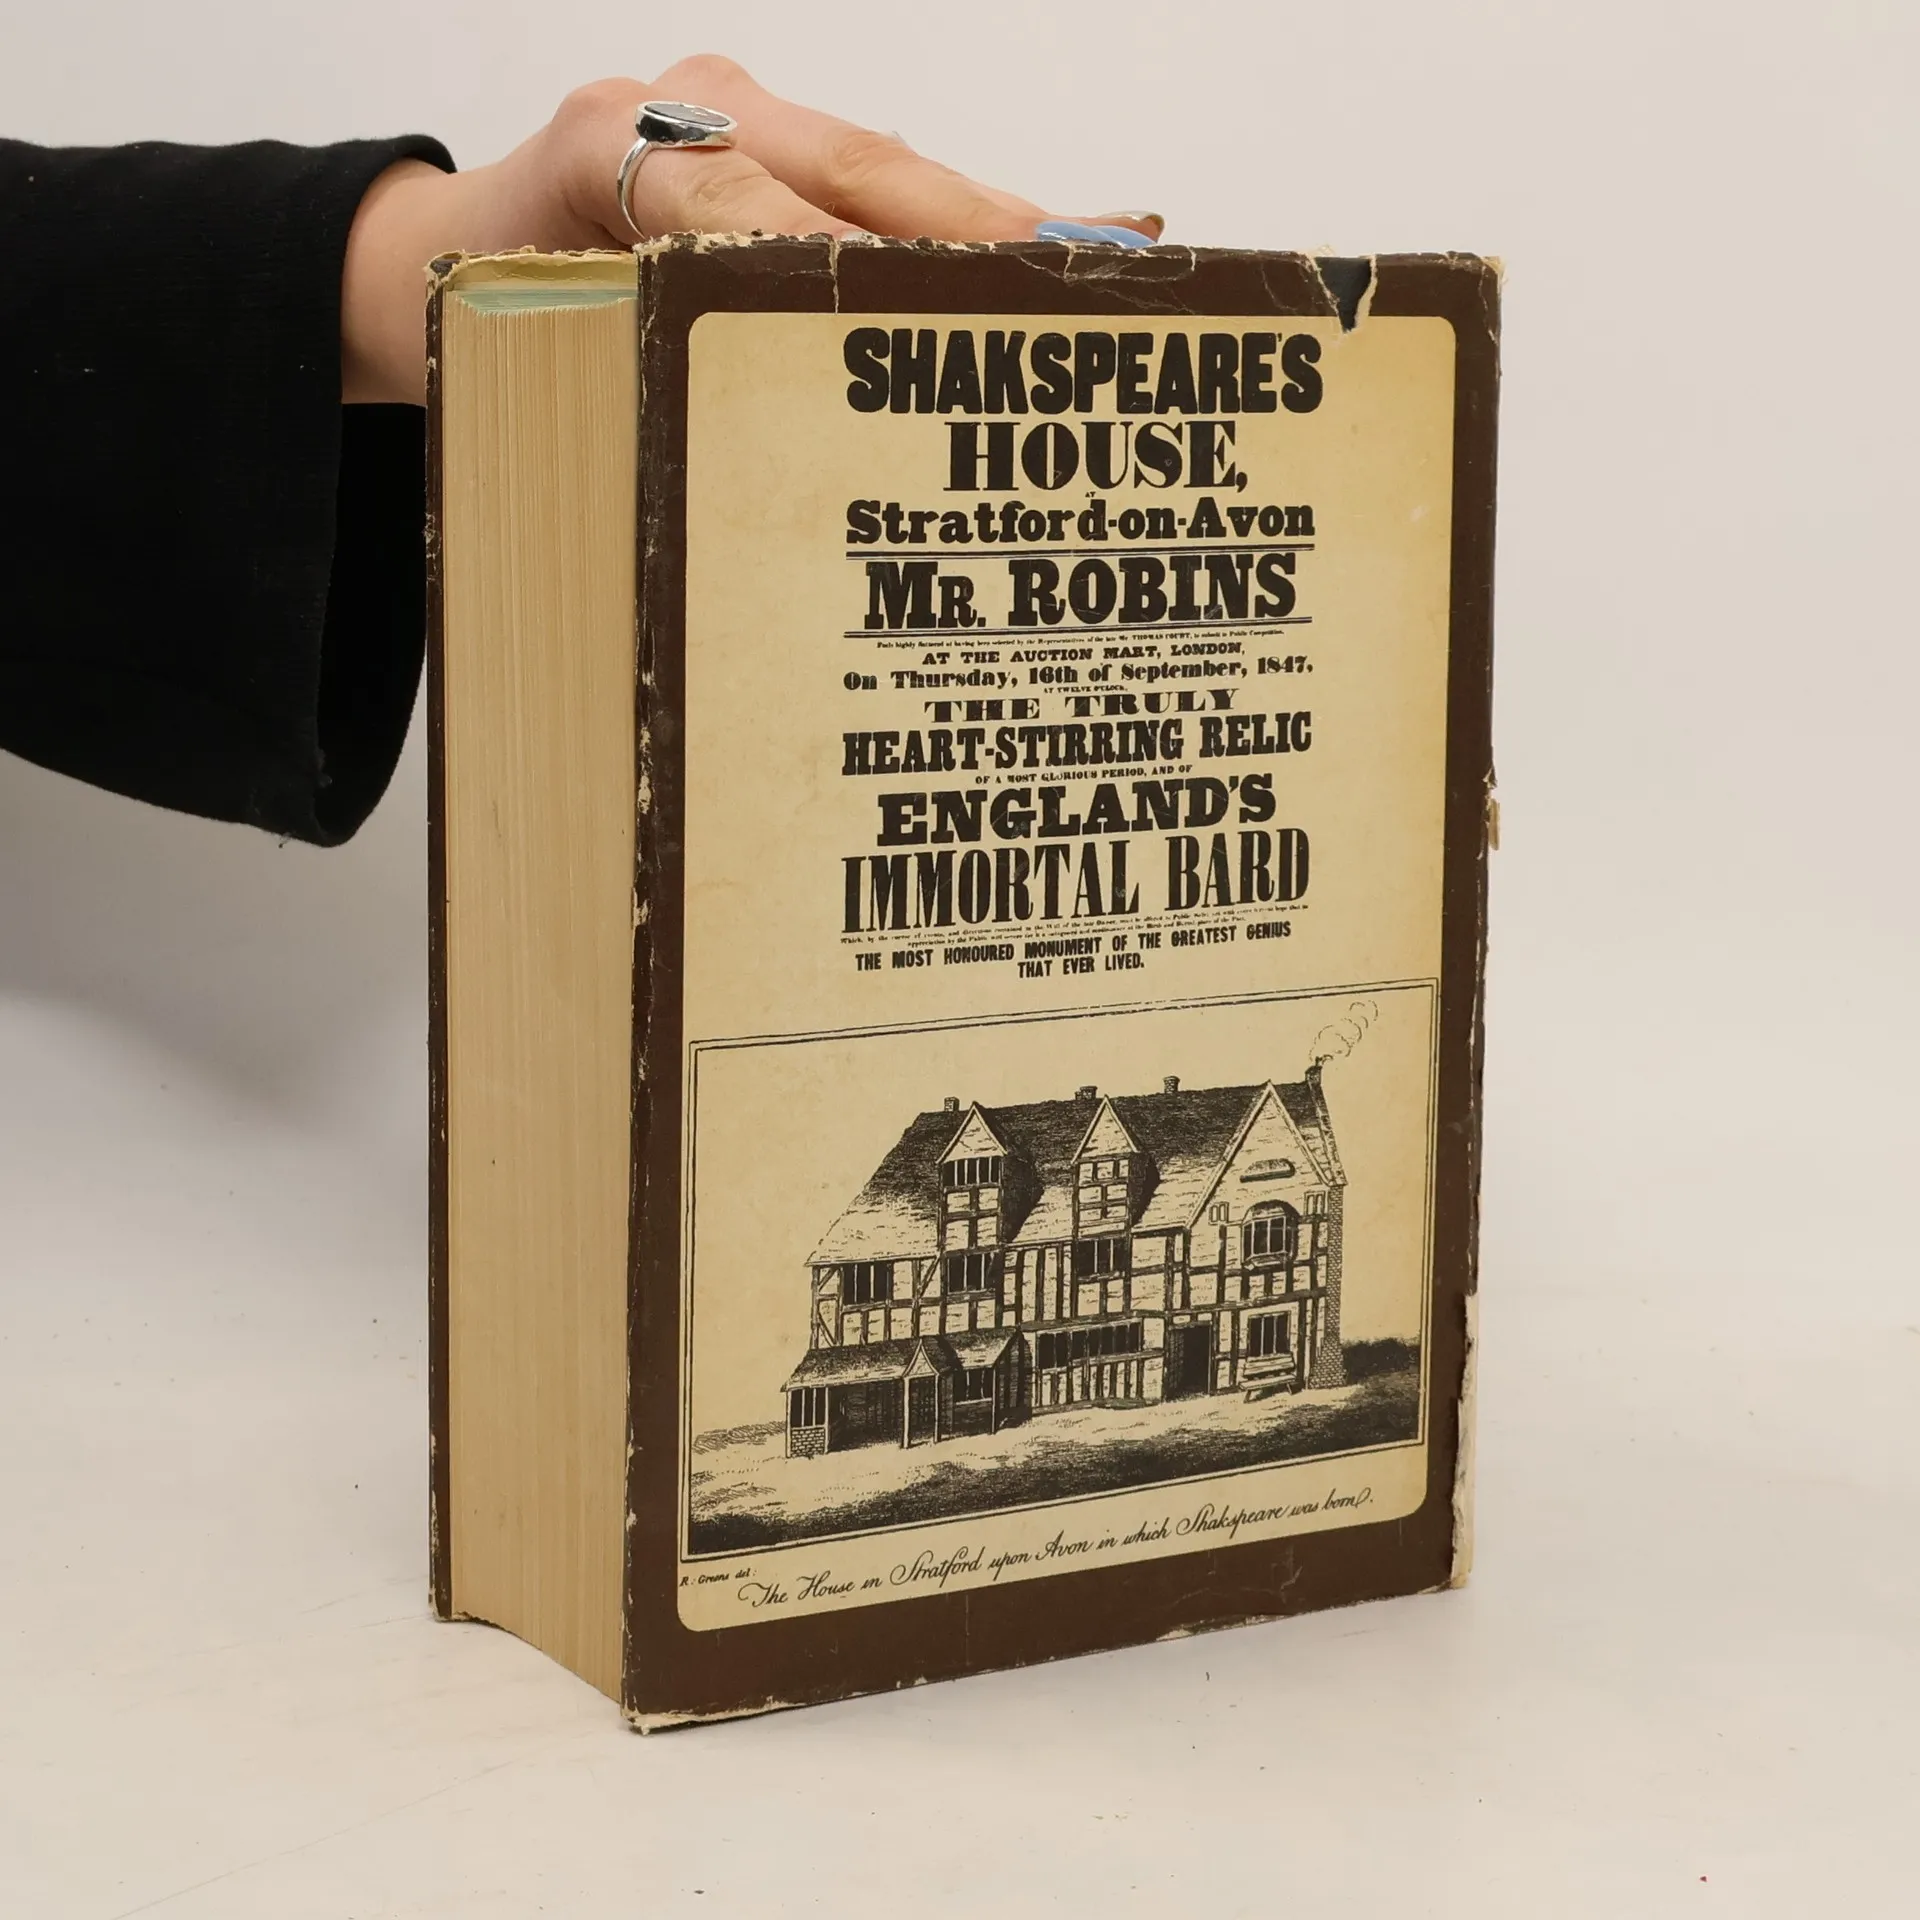 SHAKSPEARE'S
HOUSE,
AT
Stratford-on-Avon
MR. ROBINS
Feels highly flattered at having been selected by the Representatives of the late Mr THOMAS COURT, to submit to Public Competition,
AT THE AUCTION MART, LONDON,
On Thursday, 16th of September, 1847,
AT TWELVE O'CLOCK,
THE TRULY
HEART-STIRRING RELIC
OF A MOST GLORIOUS PERIOD, AND OF
ENGLAND'S
IMMORTAL BARD
Which, by the course of events, and directions contained in the Will of the late Owner, must be offered to Public Sale,
THE MOST HONOURED MONUMENT OF THE GREATEST GENIUS
THAT EVER LIVED.
R: Greene del:
The House in Stratford upon Avon in which Shakspeare was born.